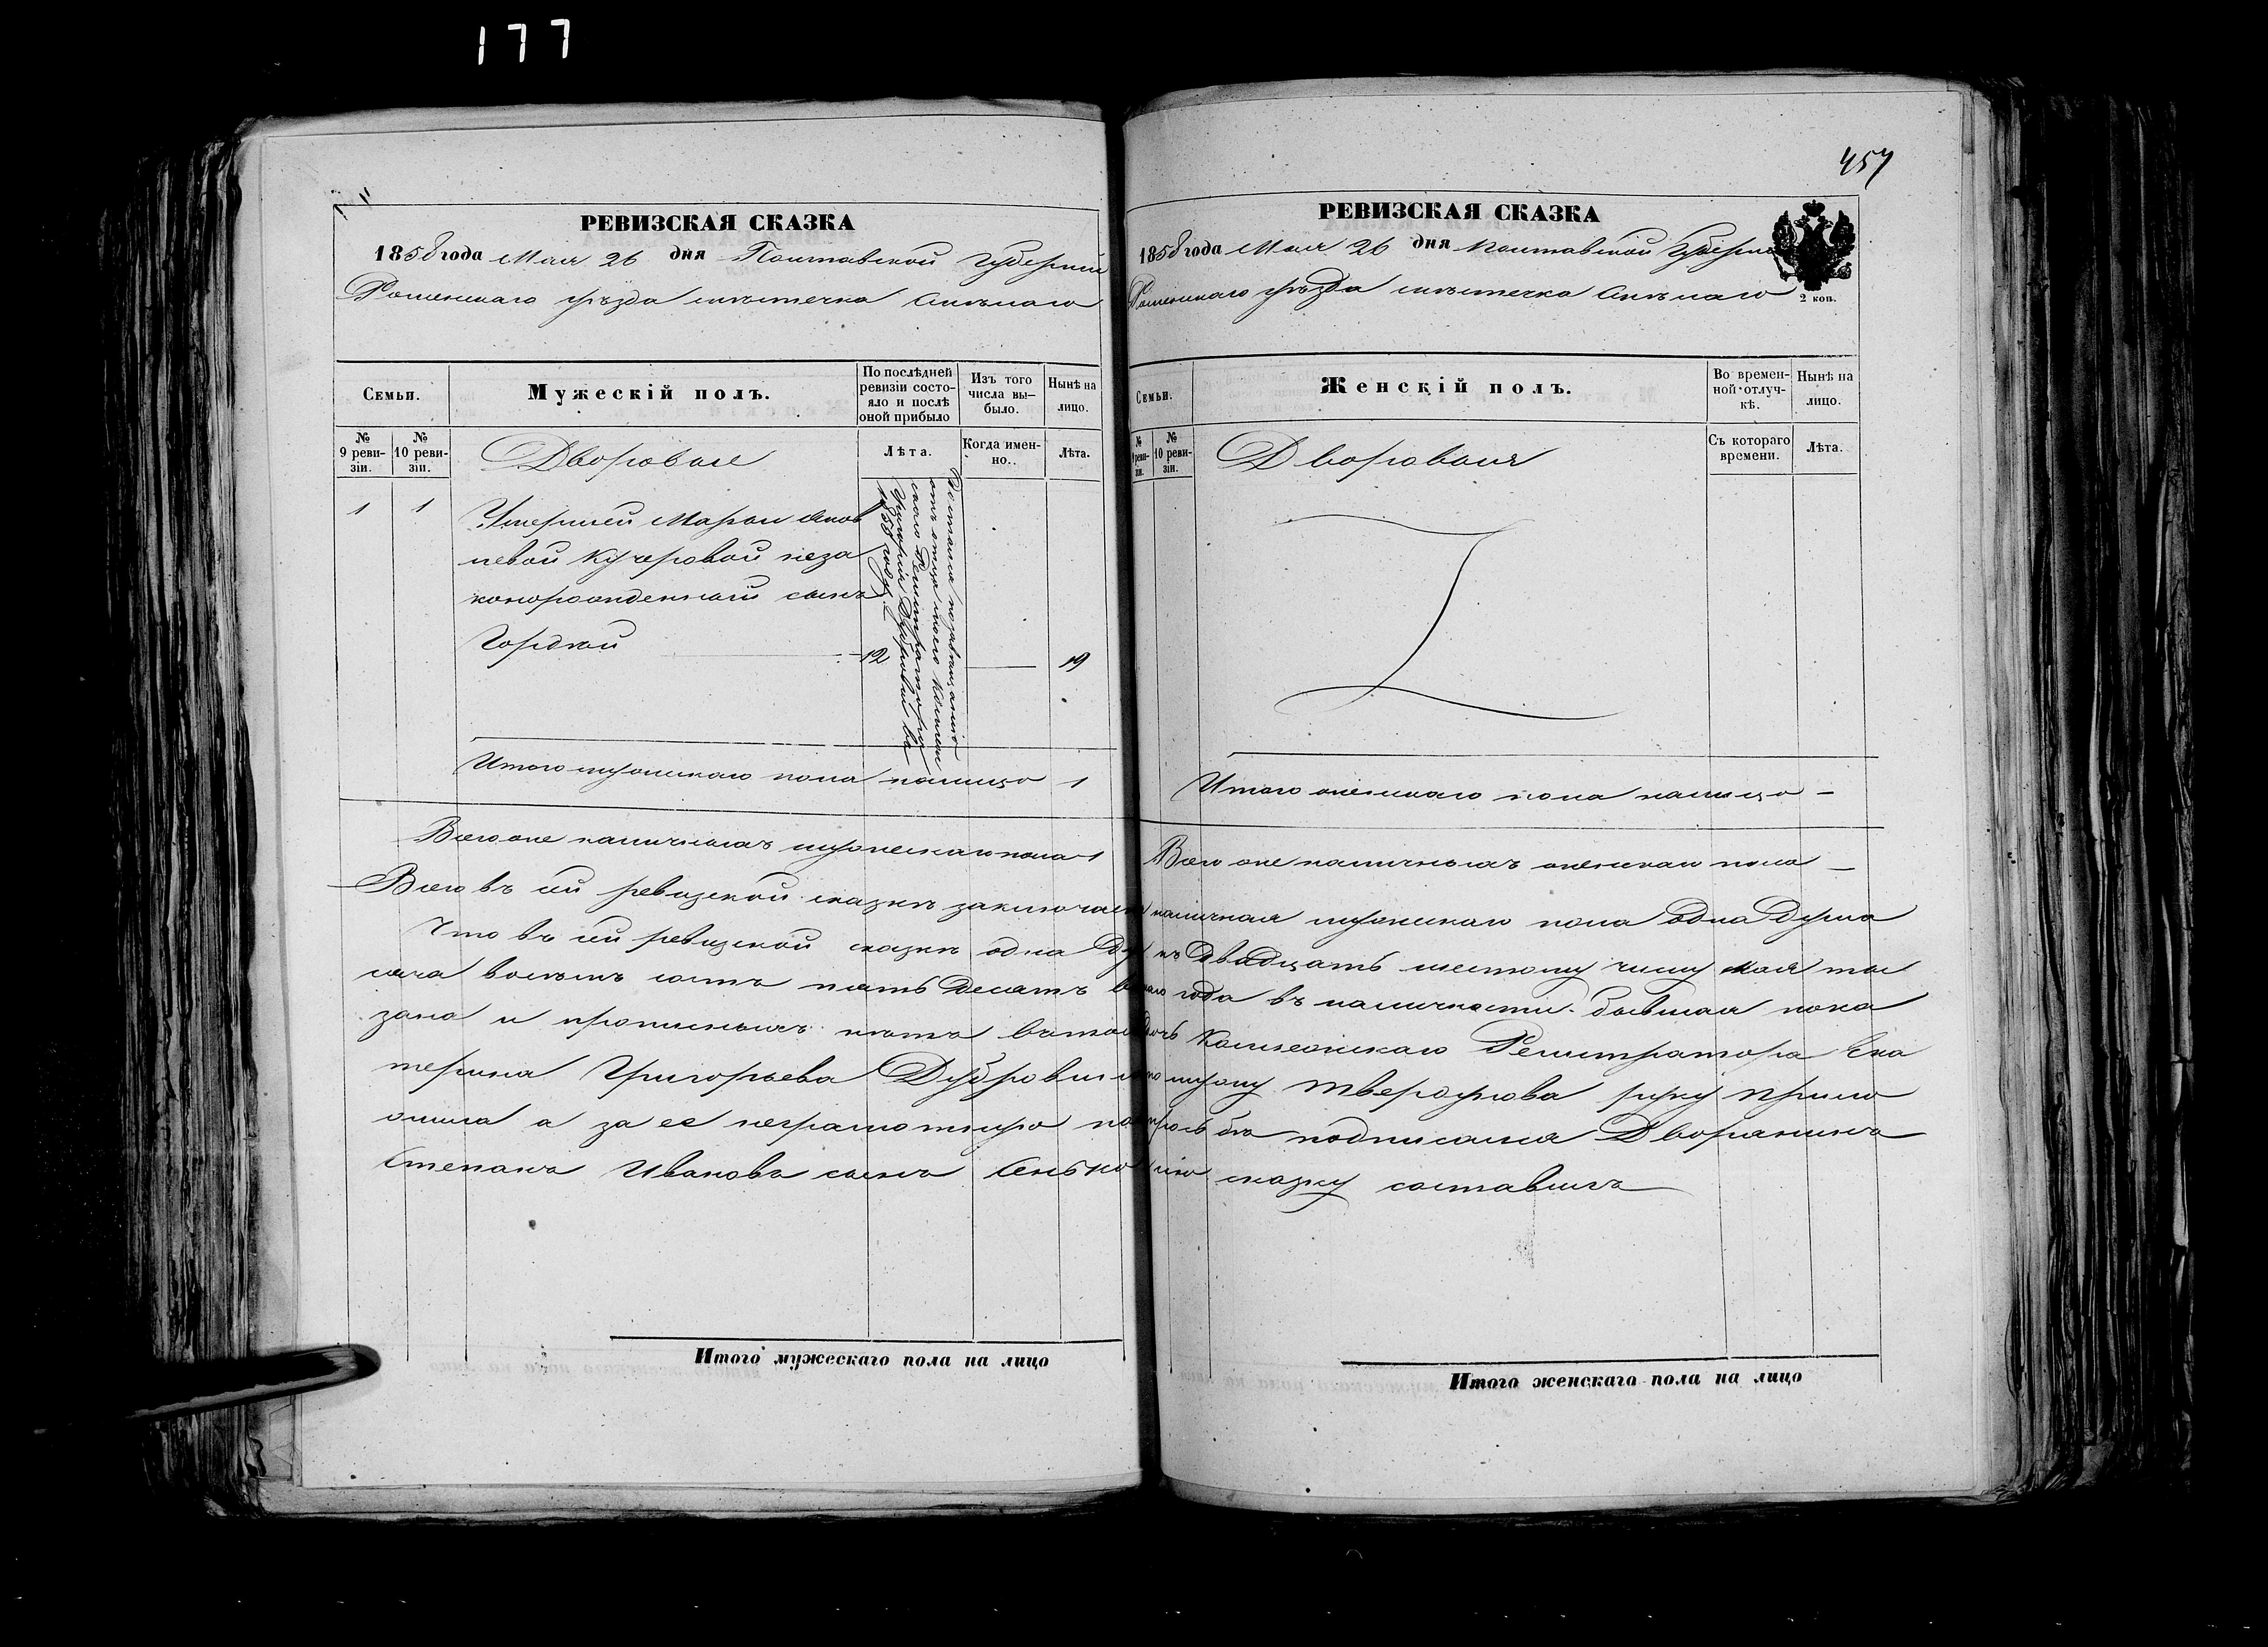 177
РЕВИЗСКАЯ СКАЗКА
1858 года Мая 26 дня Полтавской Губерніи
Роменскаго уѣзда мѣстечка Смѣлаго
Семьи.
Мужескій полъ.
По послѣдней ревизіи состояло и послѣ оной прибыло
Изъ того числа вы-было.
Нынѣ на лицо.
№ 9 реви-зіи.
№ 10 реви-зіи.
Дворовые
Лѣта.
Когда имен-но..
Лѣта.
1 1 Умершей Марьи Яков
левой Кучеровой неза
конорожденный сынъ
Гордѣй 12 19
Достался по
отъ отца моего
Григорія Дубровы въ
185 году
Итого мужескаго пола налицо 1
Всего же наличныхъ мужескаго пола 1
457
РЕВИЗСКАЯ СКАЗКА
1858 года Мая 26 дня Полтавской Губерніи
Роменскаго уѣзда мѣстечка Смѣлаго
2 коп.
Семьи.
Женскій полъ.
Во времен-ной отлуч-кѣ.
Нынѣ на лицо.
№ реви-зіи.
№ 10 реви-зіи.
Дворовыя
Съ котораго времени.
Лѣта.
Итого женскаго пола налицо —
Всего же наличныхъ женскаго пола —
Всего въ сей ревизской сказкѣ заключается наличная мужескаго пола одна душа
Что въ сей ревизской сказкѣ одна къ двадцать шестому числу Мая ты
сяча восемь сотъ пять десятъ года въ наличности бывшая пока
зана и прописныхъ нѣтъ въ томъ дочь Коллежскаго Регистратора Ека
терина Григорьева Дубровина по мужу Твердохлѣбова руку прило
жила а за ее неграмотную по просьбѣ подписался Дворянинъ
Степанъ Ивановъ сынъ Сенько сію сказку составилъ
Итого мужескаго пола на лицо
Итого женскаго пола на лицо